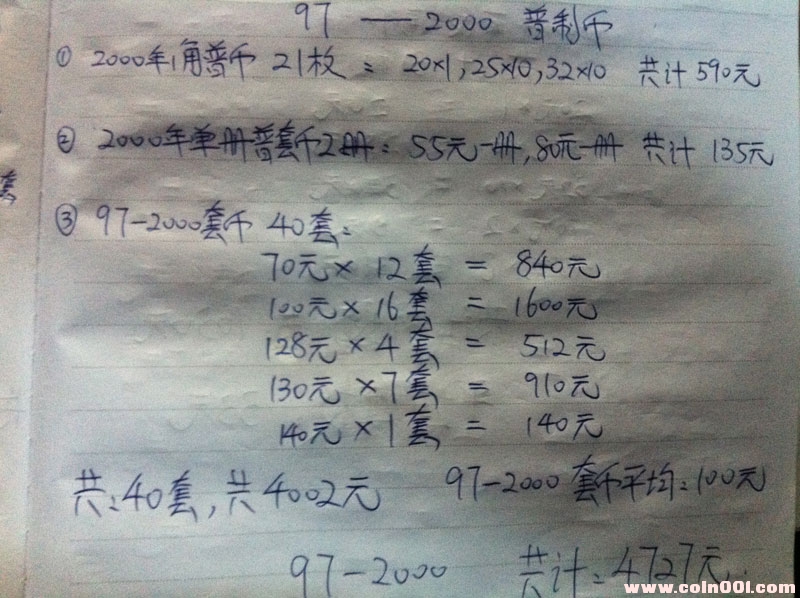 97 — 2000 普制币
① 2000年1角普币 21枚: 20×1,25×10,32×10 共计590元
② 2000年单册普套币2册: 55元一册,80元一册 共计 135元
③ 97-2000套币 40套:
70元 × 12套 = 840元
100元 × 16套 = 1600元
128元 × 4套 = 512元
130元 × 7套 = 910元
140元 × 1套 = 140元
共:40套,共4002元 97-2000套币平均:100元
97-2000 共计:4727元
www.coin001.com